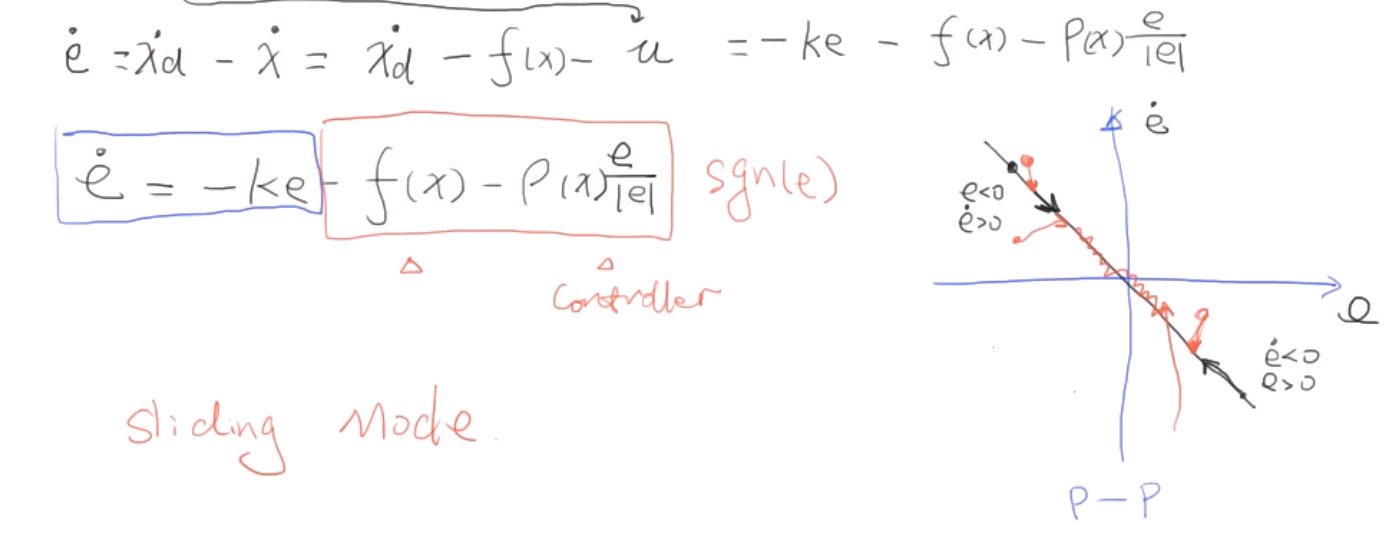 ė = ẋd - ẋ = ẋd - f(x) - u = -ke - f(x) - ρ(x) e/|e|
ė = -ke - f(x) - ρ(x) e/|e| sgn(e)
Controller
sliding Mode.
ė
e<0
ė>0
e
ė<0
e>0
P-P